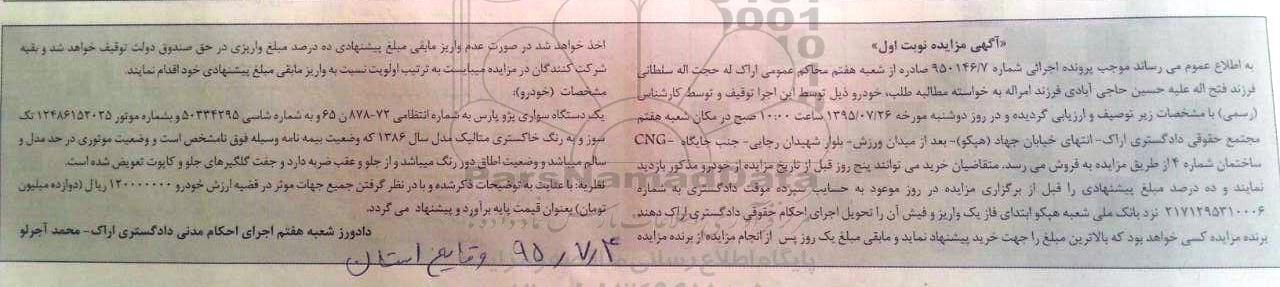 «آگهی مزایده نوبت اول»
به اطلاع عموم می رساند موجب پرونده اجرائی شماره ۹۵۰۱۴۶/۷ صادره از شعبه هفتم محاکم عمومی اراک له حجت اله سلطانی
فرزند فتح اله علیه حسین حاجی آبادی فرزند امراله به خواسته مطالبه طلب، خودرو ذیل توسط این اجرا توقیف و توسط کارشناس
(رسمی) با مشخصات زیر توصیف و ارزیابی گردیده و در روز دوشنبه مورخه ۱۳۹۵/۰۷/۲۶ ساعت ۱۰:۰۰ صبح در مکان شعبه هفتم
مجتمع حقوقی دادگستری اراک- انتهای خیابان جهاد (هپکو)- بعد از میدان ورزش- بلوار شهیدان رجایی- جنب جایگاه CNG-
ساختمان شماره ۴ از طریق مزایده به فروش می رسد. متقاضیان خرید می توانند پنج روز قبل از تاریخ مزایده از خودرو مذکور بازدید
نمایند و ده درصد مبلغ پیشنهادی را قبل از برگزاری مزایده در روز موعود به حساب سپرده موقت دادگستری به شماره
۲۱۷۱۲۹۵۳۱۰۰۰۶ نزد بانک ملی شعبه هپکو ابتدای فاز یک واریز و فیش آن را تحویل اجرای احکام حقوقی دادگستری اراک دهند.
برنده مزایده کسی خواهد بود که بالاترین مبلغ را جهت خرید پیشنهاد نماید و مابقی مبلغ یک روز پس از انجام مزایده از برنده مزایده
اخذ خواهد شد در صورت عدم واریز مابقی مبلغ پیشنهادی ده درصد مبلغ واریزی در حق صندوق دولت توقیف خواهد شد و بقیه
شرکت کنندگان در مزایده میبایست به ترتیب اولویت نسبت به واریز مابقی مبلغ پیشنهادی خود اقدام نمایند.
مشخصات (خودرو):
یک دستگاه سواری پژو پارس به شماره انتظامی ۷۲-۸۷۸ن ۶۵ و به شماره شاسی ۵۰۳۳۴۲۹۵ و بشماره موتور ۱۲۴۸۶۱۵۲۰۳۵ تک
سوز و به رنگ خاکستری متالیک مدل سال ۱۳۸۶ که وضعیت بیمه نامه وسیله فوق نامشخص است و وضعیت موتوری در حد مدل و
سالم میباشد و وضعیت اطاق دور رنگ میباشد و از جلو و عقب ضربه دارد و جفت گلگیرهای جلو و کاپوت تعویض شده است.
نظریه: با عنایت به توضیحات ذکر شده و با در نظر گرفتن جمیع جهات موثر در قضیه ارزش خودرو ۱۲۰۰۰۰۰۰۰ ریال (دوازده میلیون
تومان) بعنوان قیمت پایه برآورد و پیشنهاد می گردد.
دادورز شعبه هفتم اجرای احکام مدنی دادگستری اراک- محمد آجرلو
۹۵/۷/۴ وقایع استان
ParsNamadData
پایگاه اطلاع رسانی